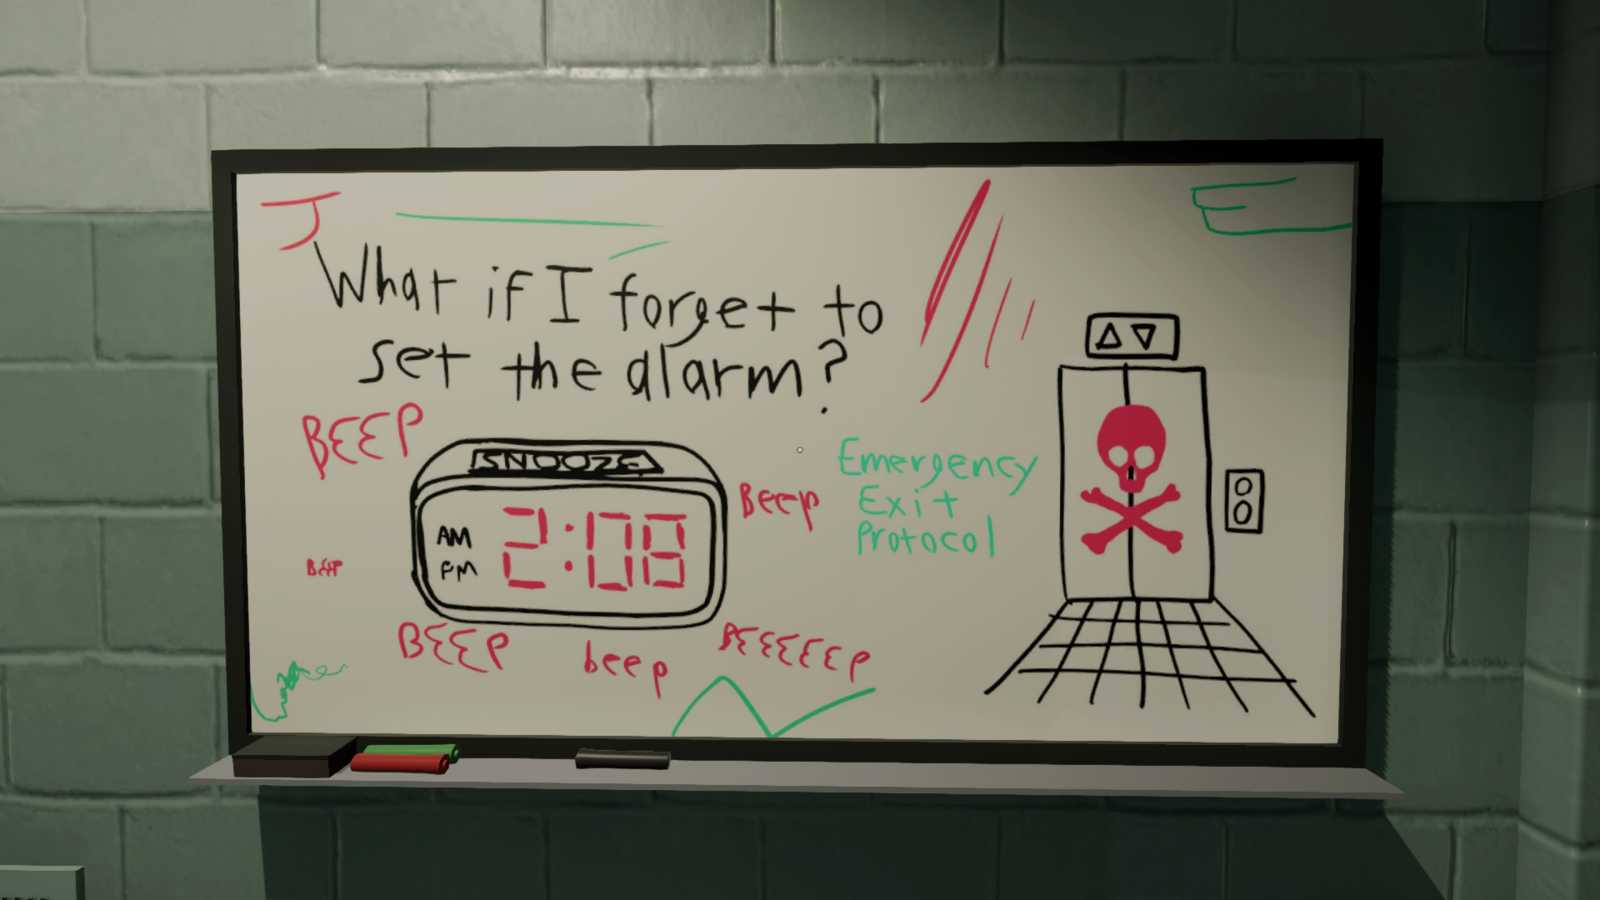 J
E
What if I forget to
set the alarm?
BEEP
SNOOZE
AM
PM
2:08
Beep
Emergency
Exit
Protocol
BEEP
BEEP
beep
BEEEEEP